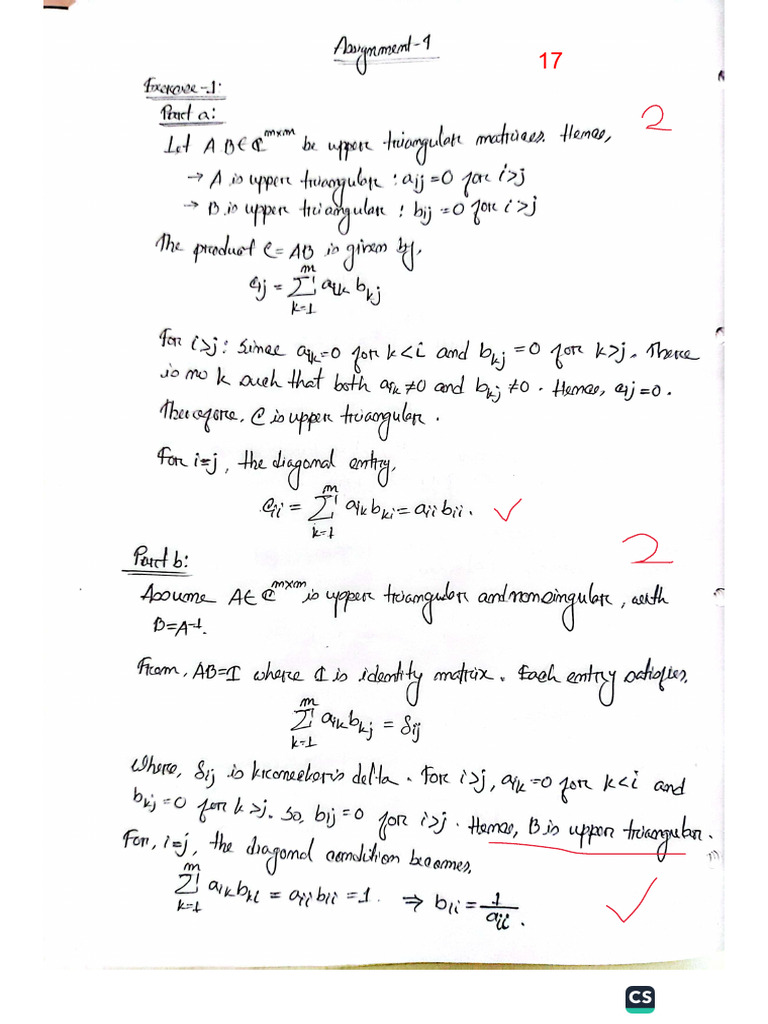 Assignment-1
17
Exercise-1:
Part a:
2
Let A B ∈ ℂ^{m×m} be upper triangular matrices. Hence,
→ A is upper triangular : aij = 0 for i>j
→ B is upper triangular : bij = 0 for i>j
The product C = AB is given by,
cij = Σ_{k=1}^{m} aik bkj
For i>j : Since aik=0 for k<i and bkj = 0 for k>j. There
is no k such that both aik≠0 and bkj≠0. Hence, cij=0.
Therefore, C is upper triangular.
For i=j, the diagonal entry,
cii = Σ_{k=1}^{m} aik bki = aii bii. ✓
Part b:
2
Assume A ∈ ℂ^{m×m} is upper triangular and nonsingular, with
B=A^{-1}.
From, AB=I where I is identity matrix. Each entry satisfies,
Σ_{k=1}^{m} aik bkj = δij
Where, δij is kronecker's delta. For i>j, aik=0 for k<i and
bkj=0 for k>j. So, bij=0 for i>j. Hence, B is upper triangular.
For, i=j, the diagonal condition becomes,
Σ_{k=1}^{m} aik bki = aii bii = 1. ⇒ bii = 1/aii. ✓
CS